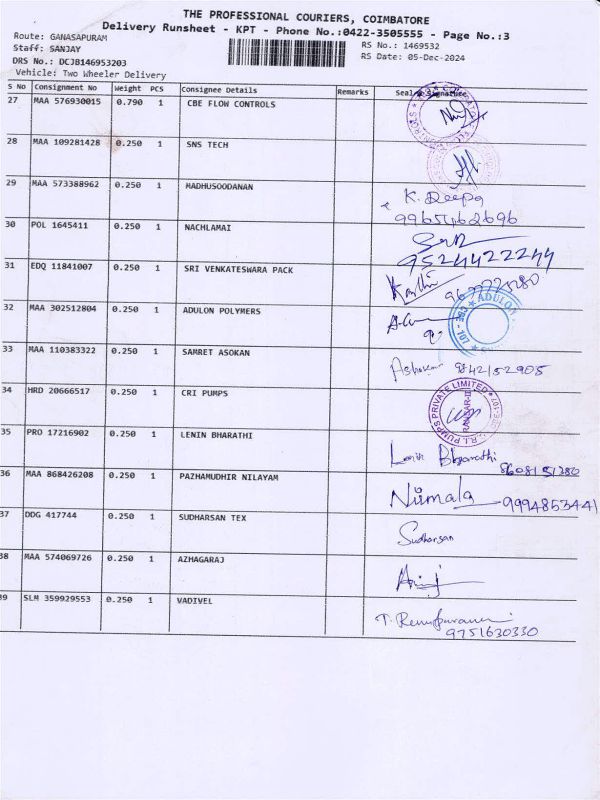 THE PROFESSIONAL COURIERS, COIMBATORE
Delivery Runsheet - KPT - Phone No.:0422-3505555 - Page No.:3
Route: GANASAPURAM
RS No.: 1469532
Staff: SANJAY
RS Date: 05-Dec-2024
DRS No.: DCJB146953203
Vehicle: Two Wheeler Delivery
S No Consignment No Weight PCS Consignee Details Remarks Seal & Signature
27 MAA 576930015 0.790 1 CBE FLOW CONTROLS
28 MAA 109281428 0.250 1 SNS TECH
29 MAA 573388962 0.250 1 MADHUSOODANAN K. Deepa
30 POL 1645411 0.250 1 NACHLAMAI
9524422244
31 EDQ 11841007 0.250 1 SRI VENKATESWARA PACK
32 MAA 302512804 0.250 1 ADULON POLYMERS ADULON
33 MAA 110383322 0.250 1 SAMRET ASOKAN
Ashokan 9842152905
34 HRD 20666517 0.250 1 CRI PUMPS C.R.I. PUMPS PRIVATE LIMITED
35 PRO 17216902 0.250 1 LENIN BHARATHI
Lenin Bharathi 8608151280
36 MAA 868426208 0.250 1 PAZHAMUDHIR NILAYAM
Nirmala 9994853441
37 DDG 417744 0.250 1 SUDHARSAN TEX
Sudharsan
38 MAA 574069726 0.250 1 AZHAGARAJ
39 SLM 359929553 0.250 1 VADIVEL
9751630330